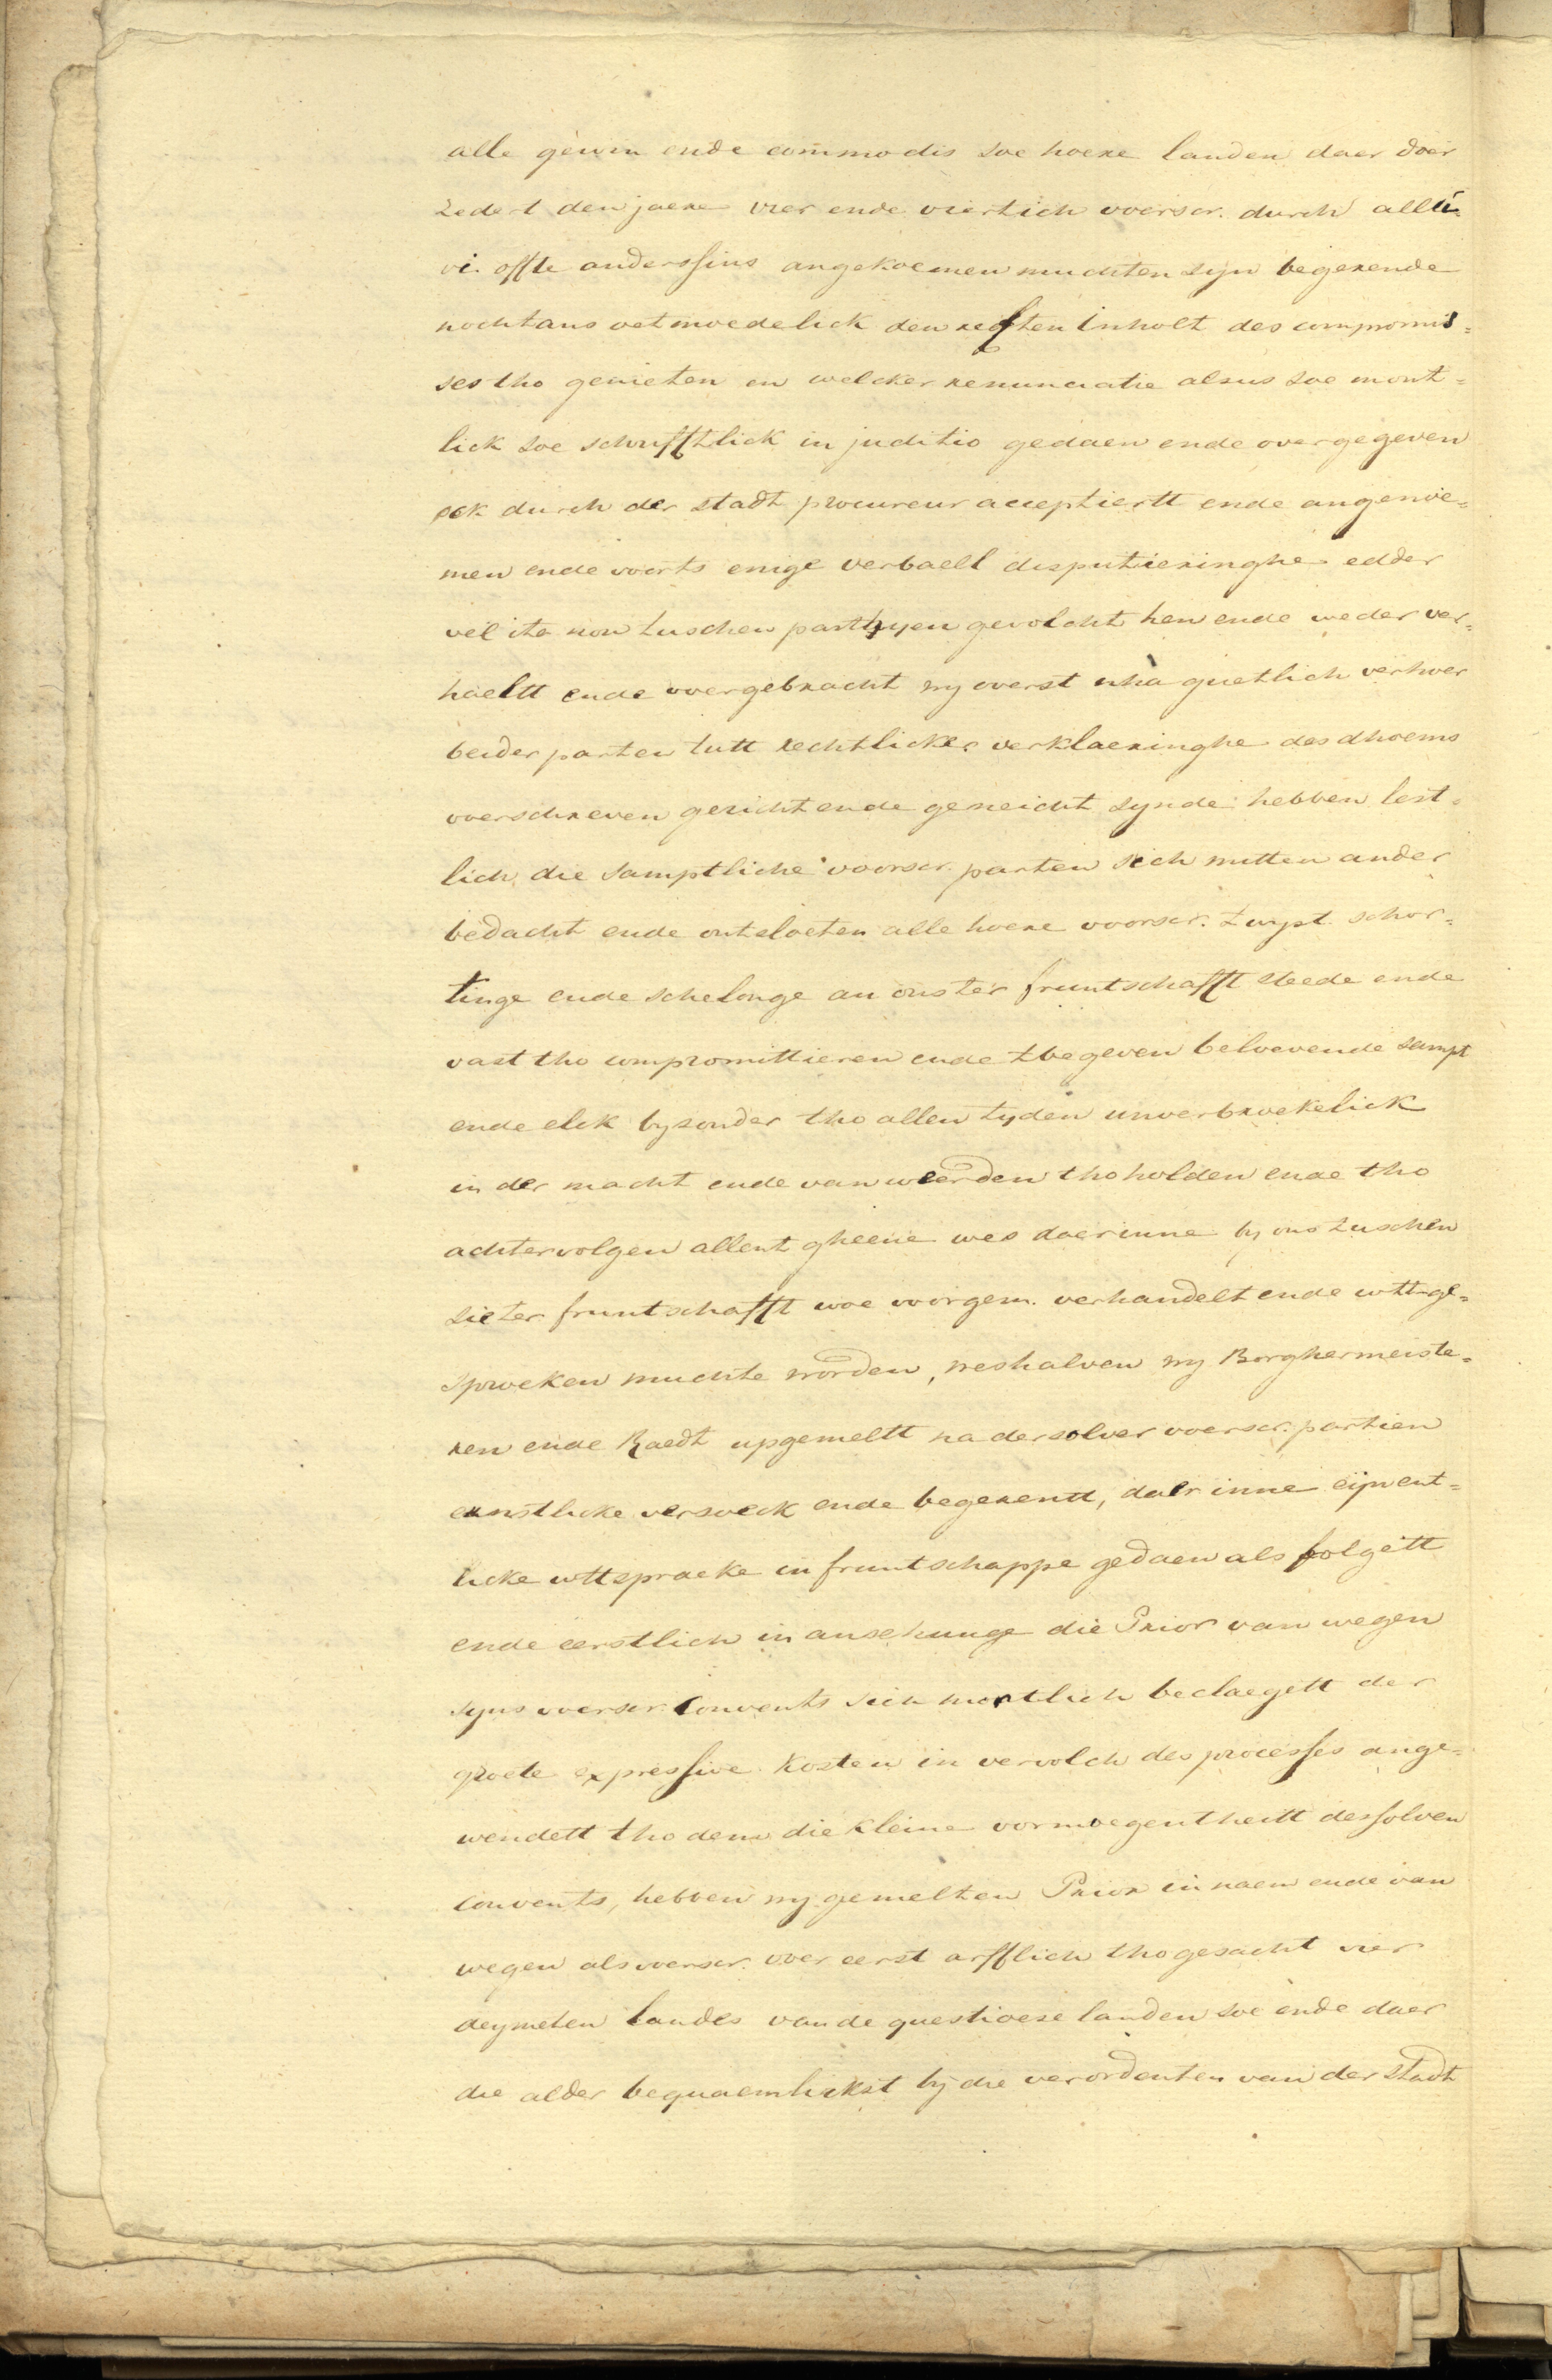 alle gewin ende commodis soe hoere landen daer doer
zedert den jaere vier ende viertich voerscr. durch allu-
vi. offte anderssins angekoemen muchten sijn begerende
nochtans oetmoedelick den rechten inholt des compromis=
ses tho genieten en welcker renunciatie alsus soe mont=
lick soe schrifftlick in juditio gedaen ende overgegeven
ock durch der stadt procureur acceptiertt ende angenoe=
men ende voorts enige verbaell disputieringhe edder
velito non tuschen parthyen gevolcht hen ende weder ver=
haeltt ende overgebracht wy overst nha guetlich verhoer
beider parten tutt rechtlicker verklaeringhe des dhoems
voerschreven gericht ende geneicht synde hebben lest=
lich die samptliche voorscr. parten sich mitten ander
bedacht ende ontsloeten alle hoere voorscr. twyst schor=
tinge ende schelonge an ons ter fruntschafft steede ende
vast tho compromittieren ende tbegeven beloevende sampt
ende elck bysonder tho allen tyden unverbroekelick
in der macht ende van weerden tho holden ende tho
achtervolgen allent gheene wes daerinne by ons tuschen
sie ter fruntschafft woe voorgem. verhandelt ende wttge=
sproeken muchte worden, weshalven wy Borghermeiste=
ren ende Raedt upgemeltt na dersolver voerscr. partien
ernstlicke versoeck ende begerentt, daer inne eijnent=
licke wttspraeke in fruntschappe gedaen als folgett
ende eerstlich in ansehunge die Prior van wegen
syns voerscr. Convents sich montlich beclaegett der
groete expressive kosten in vervolch des processes ange=
wendett tho dem die kleine vormoegentheitt dessolven
Convents, hebben wy gemelten Prior in naem ende van
wegen als voerscr. voer eerst arfflich thogesacht vier
deymeten landes van de questioese landen soe ende daer
die alder bequaemlickst bij die verordenten van der stadt